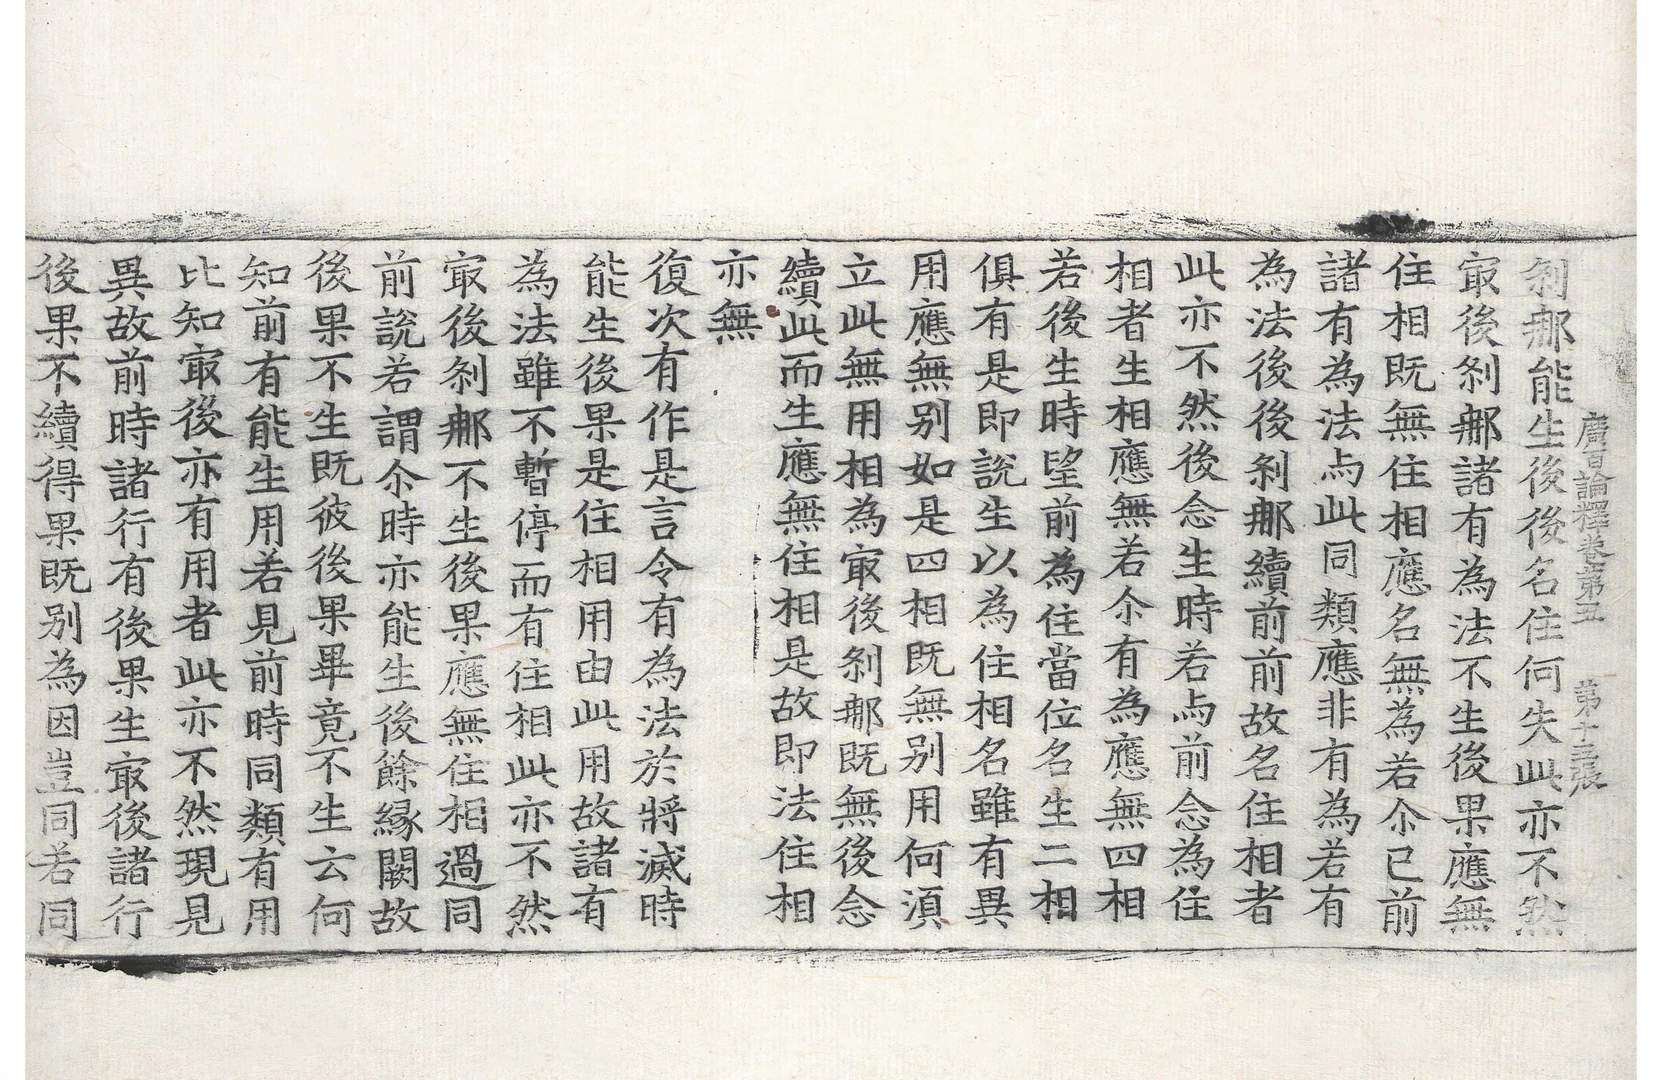 廣百論釋卷第五　第十三張
刹那能生後後名住何失此亦不然
㝡後刹那諸有為法不生後果應無
住相既無住相應名無為若尒已前
諸有為法与此同類應非有為若有
為法後後刹那續前前故名住相者
此亦不然後念生時若与前念為住
相者生相應無若尒有為應無四相
若後生時望前為住當位名生二相
俱有是即說生以為住相名雖有異
用應無别如是四相既無别用何湏
立此無用相為㝡後刹那既無後念
續此而生應無住相是故即法住相
亦無
復次有作是言令有為法於將滅時
能生後果是住相用由此用故諸有
為法雖不暫停而有住相此亦不然
㝡後刹那不生後果應無住相過同
前說若謂尒時亦能生後餘縁闕故
後果不生既彼後果畢竟不生云何
知前有能生用若見前時同類有用
比知㝡後亦有用者此亦不然現見
異故前時諸行有後果生㝡後諸行
後果不續得果既别為因豈同若同